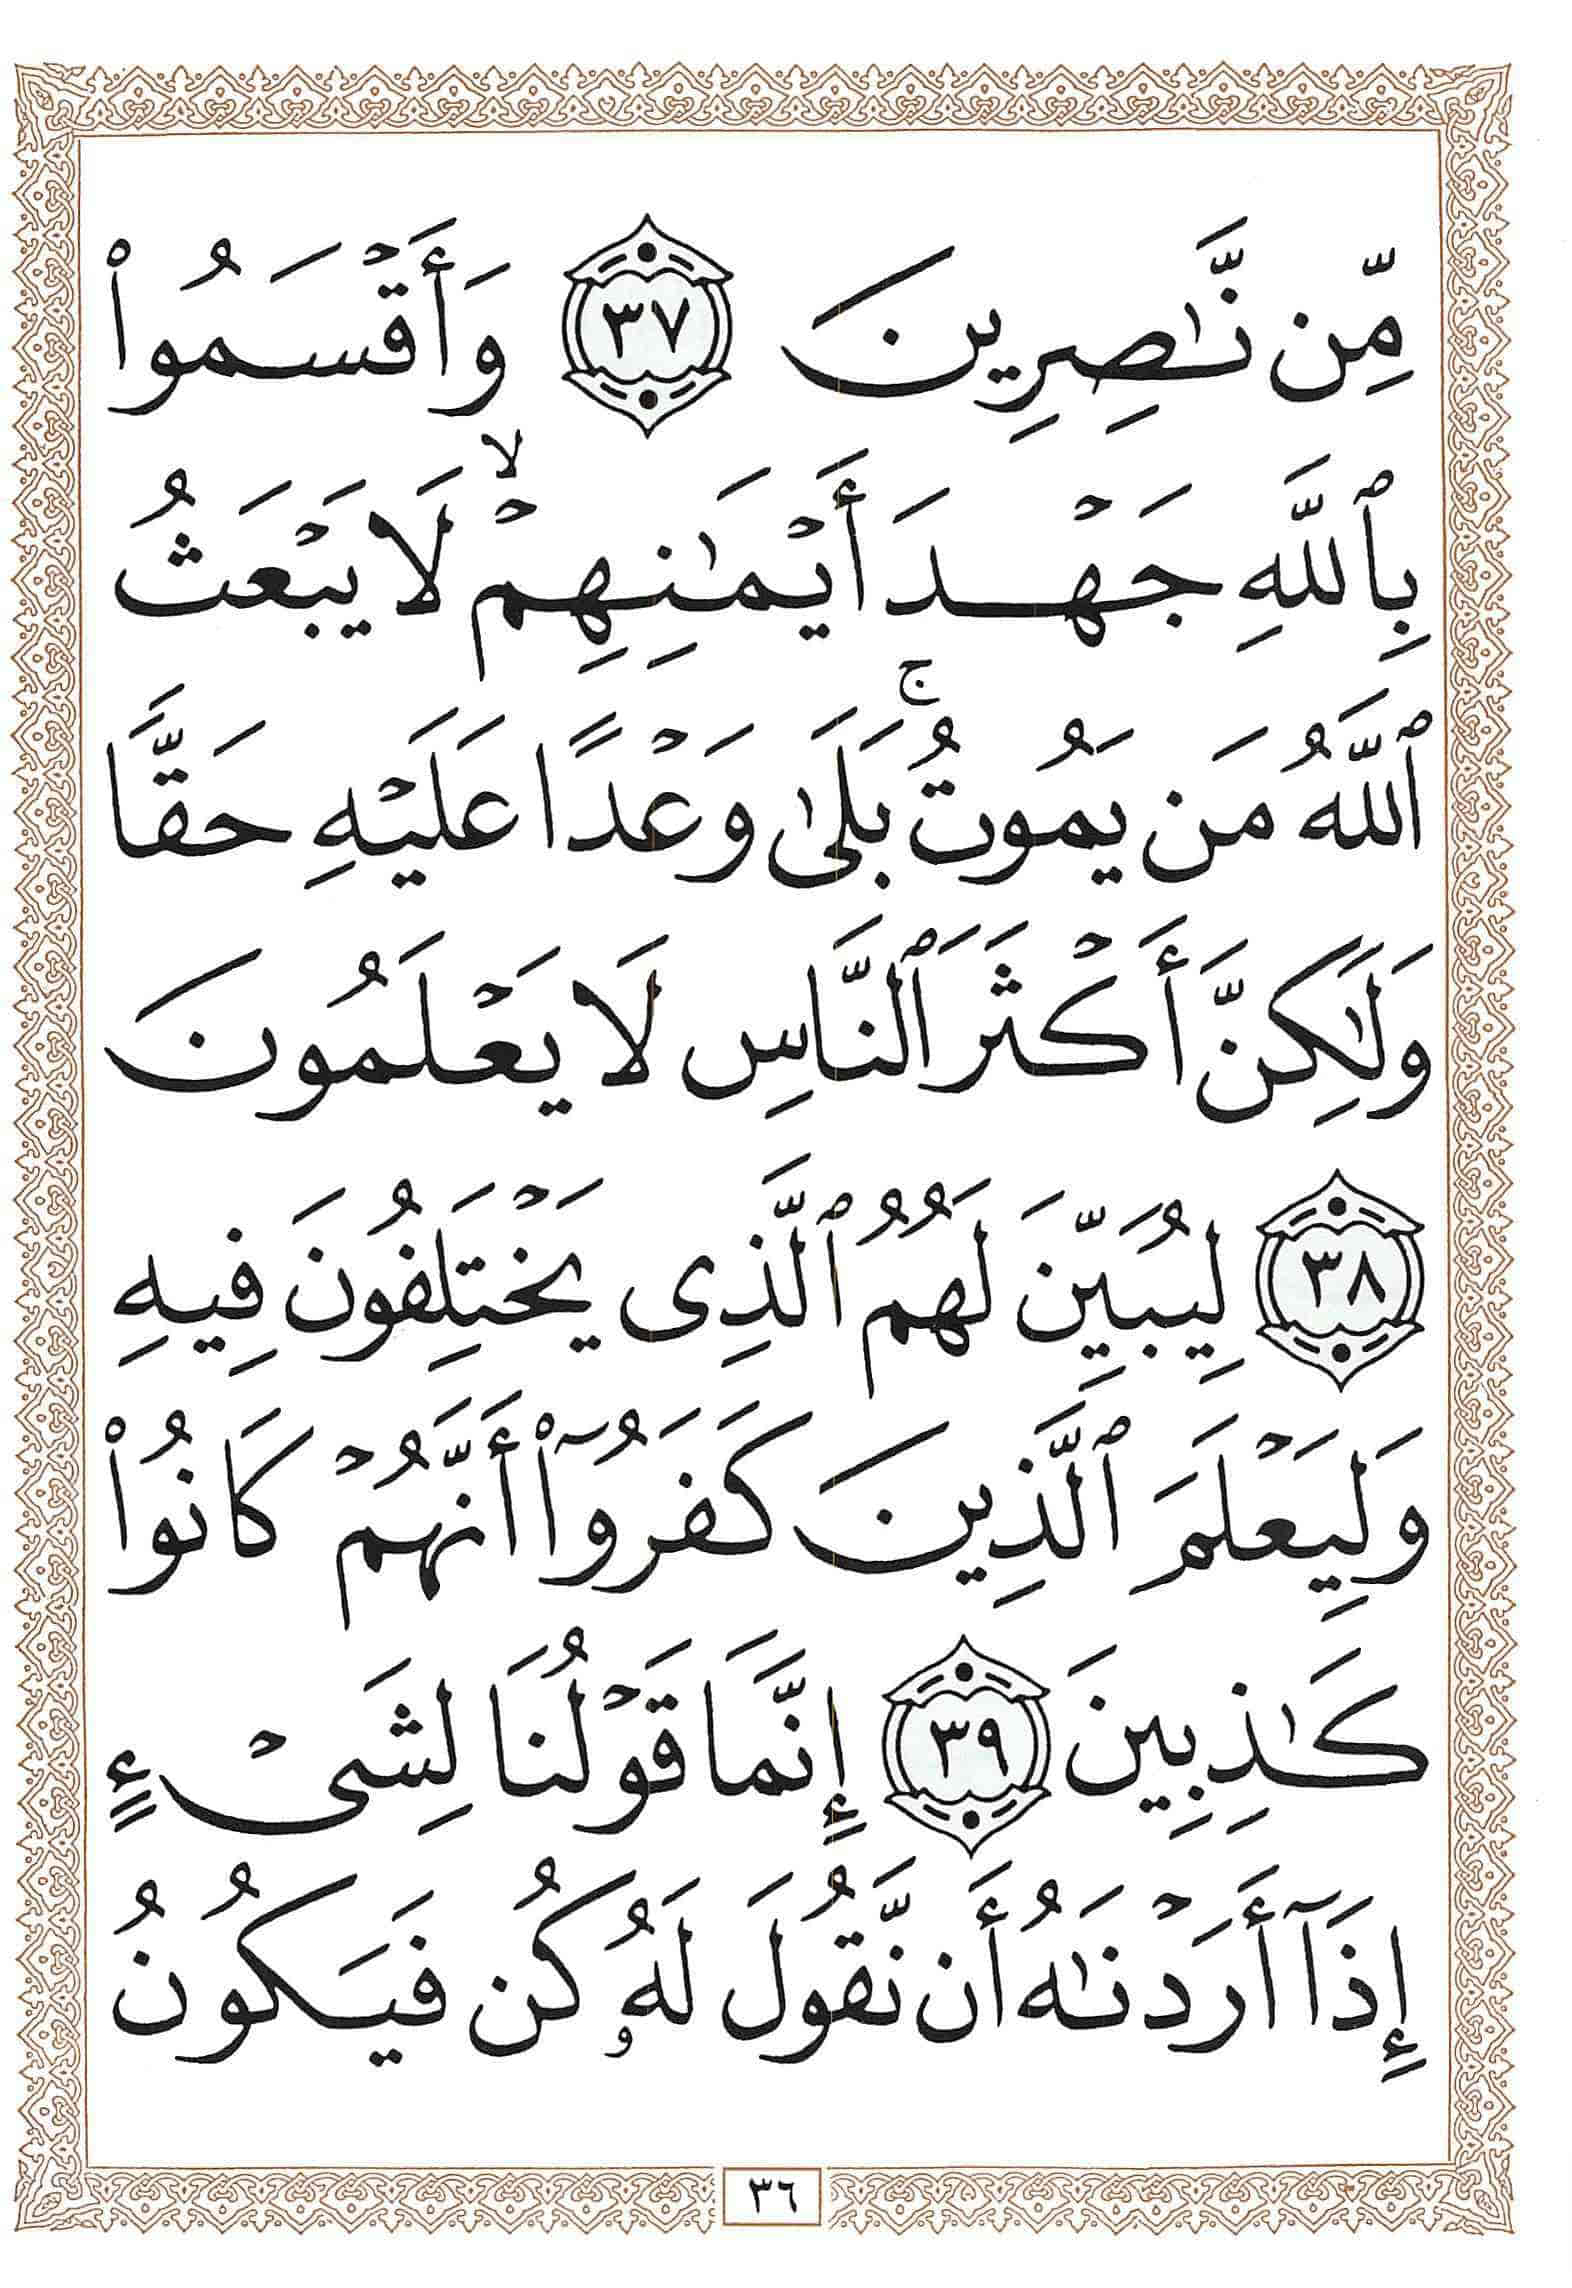 مِّن نَّـٰصِرِينَ ٣٧ وَأَقْسَمُوا۟
بِٱللَّهِ جَهْدَ أَيْمَـٰنِهِمْ ۙ لَا يَبْعَثُ
ٱللَّهُ مَن يَمُوتُ ۚ بَلَىٰ وَعْدًا عَلَيْهِ حَقًّا
وَلَـٰكِنَّ أَكْثَرَ ٱلنَّاسِ لَا يَعْلَمُونَ
٣٨ لِيُبَيِّنَ لَهُمُ ٱلَّذِى يَخْتَلِفُونَ فِيهِ
وَلِيَعْلَمَ ٱلَّذِينَ كَفَرُوٓا۟ أَنَّهُمْ كَانُوا۟
كَـٰذِبِينَ ٣٩ إِنَّمَا قَوْلُنَا لِشَىْءٍ
إِذَآ أَرَدْنَـٰهُ أَن نَّقُولَ لَهُۥ كُن فَيَكُونُ
٣٦